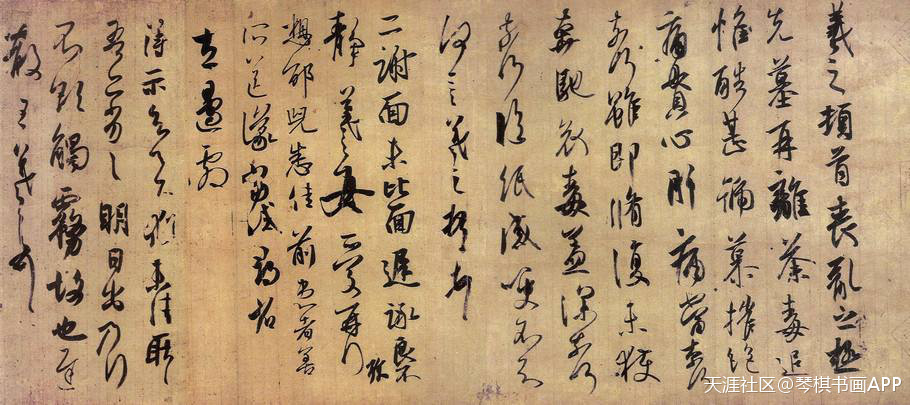 羲之頓首喪亂之極
先墓再離荼毒追
惟酷甚號慕摧絕
痛貫心肝痛當奈何
奈何雖即脩復未獲
奔馳哀毒益深奈何
奈何臨紙感哽不知
何言羲之頓首頓首
二謝面未比面遲詠良不
靜羲之女愛再拜
想邵兒悉佳前患者善
所送議當試尋省
左邊劇
得示知足下猶未佳耿耿
吾亦劣劣明日出乃行
不欲觸霧故也遲
散王羲之頓首
天涯社区@琴棋书画APP